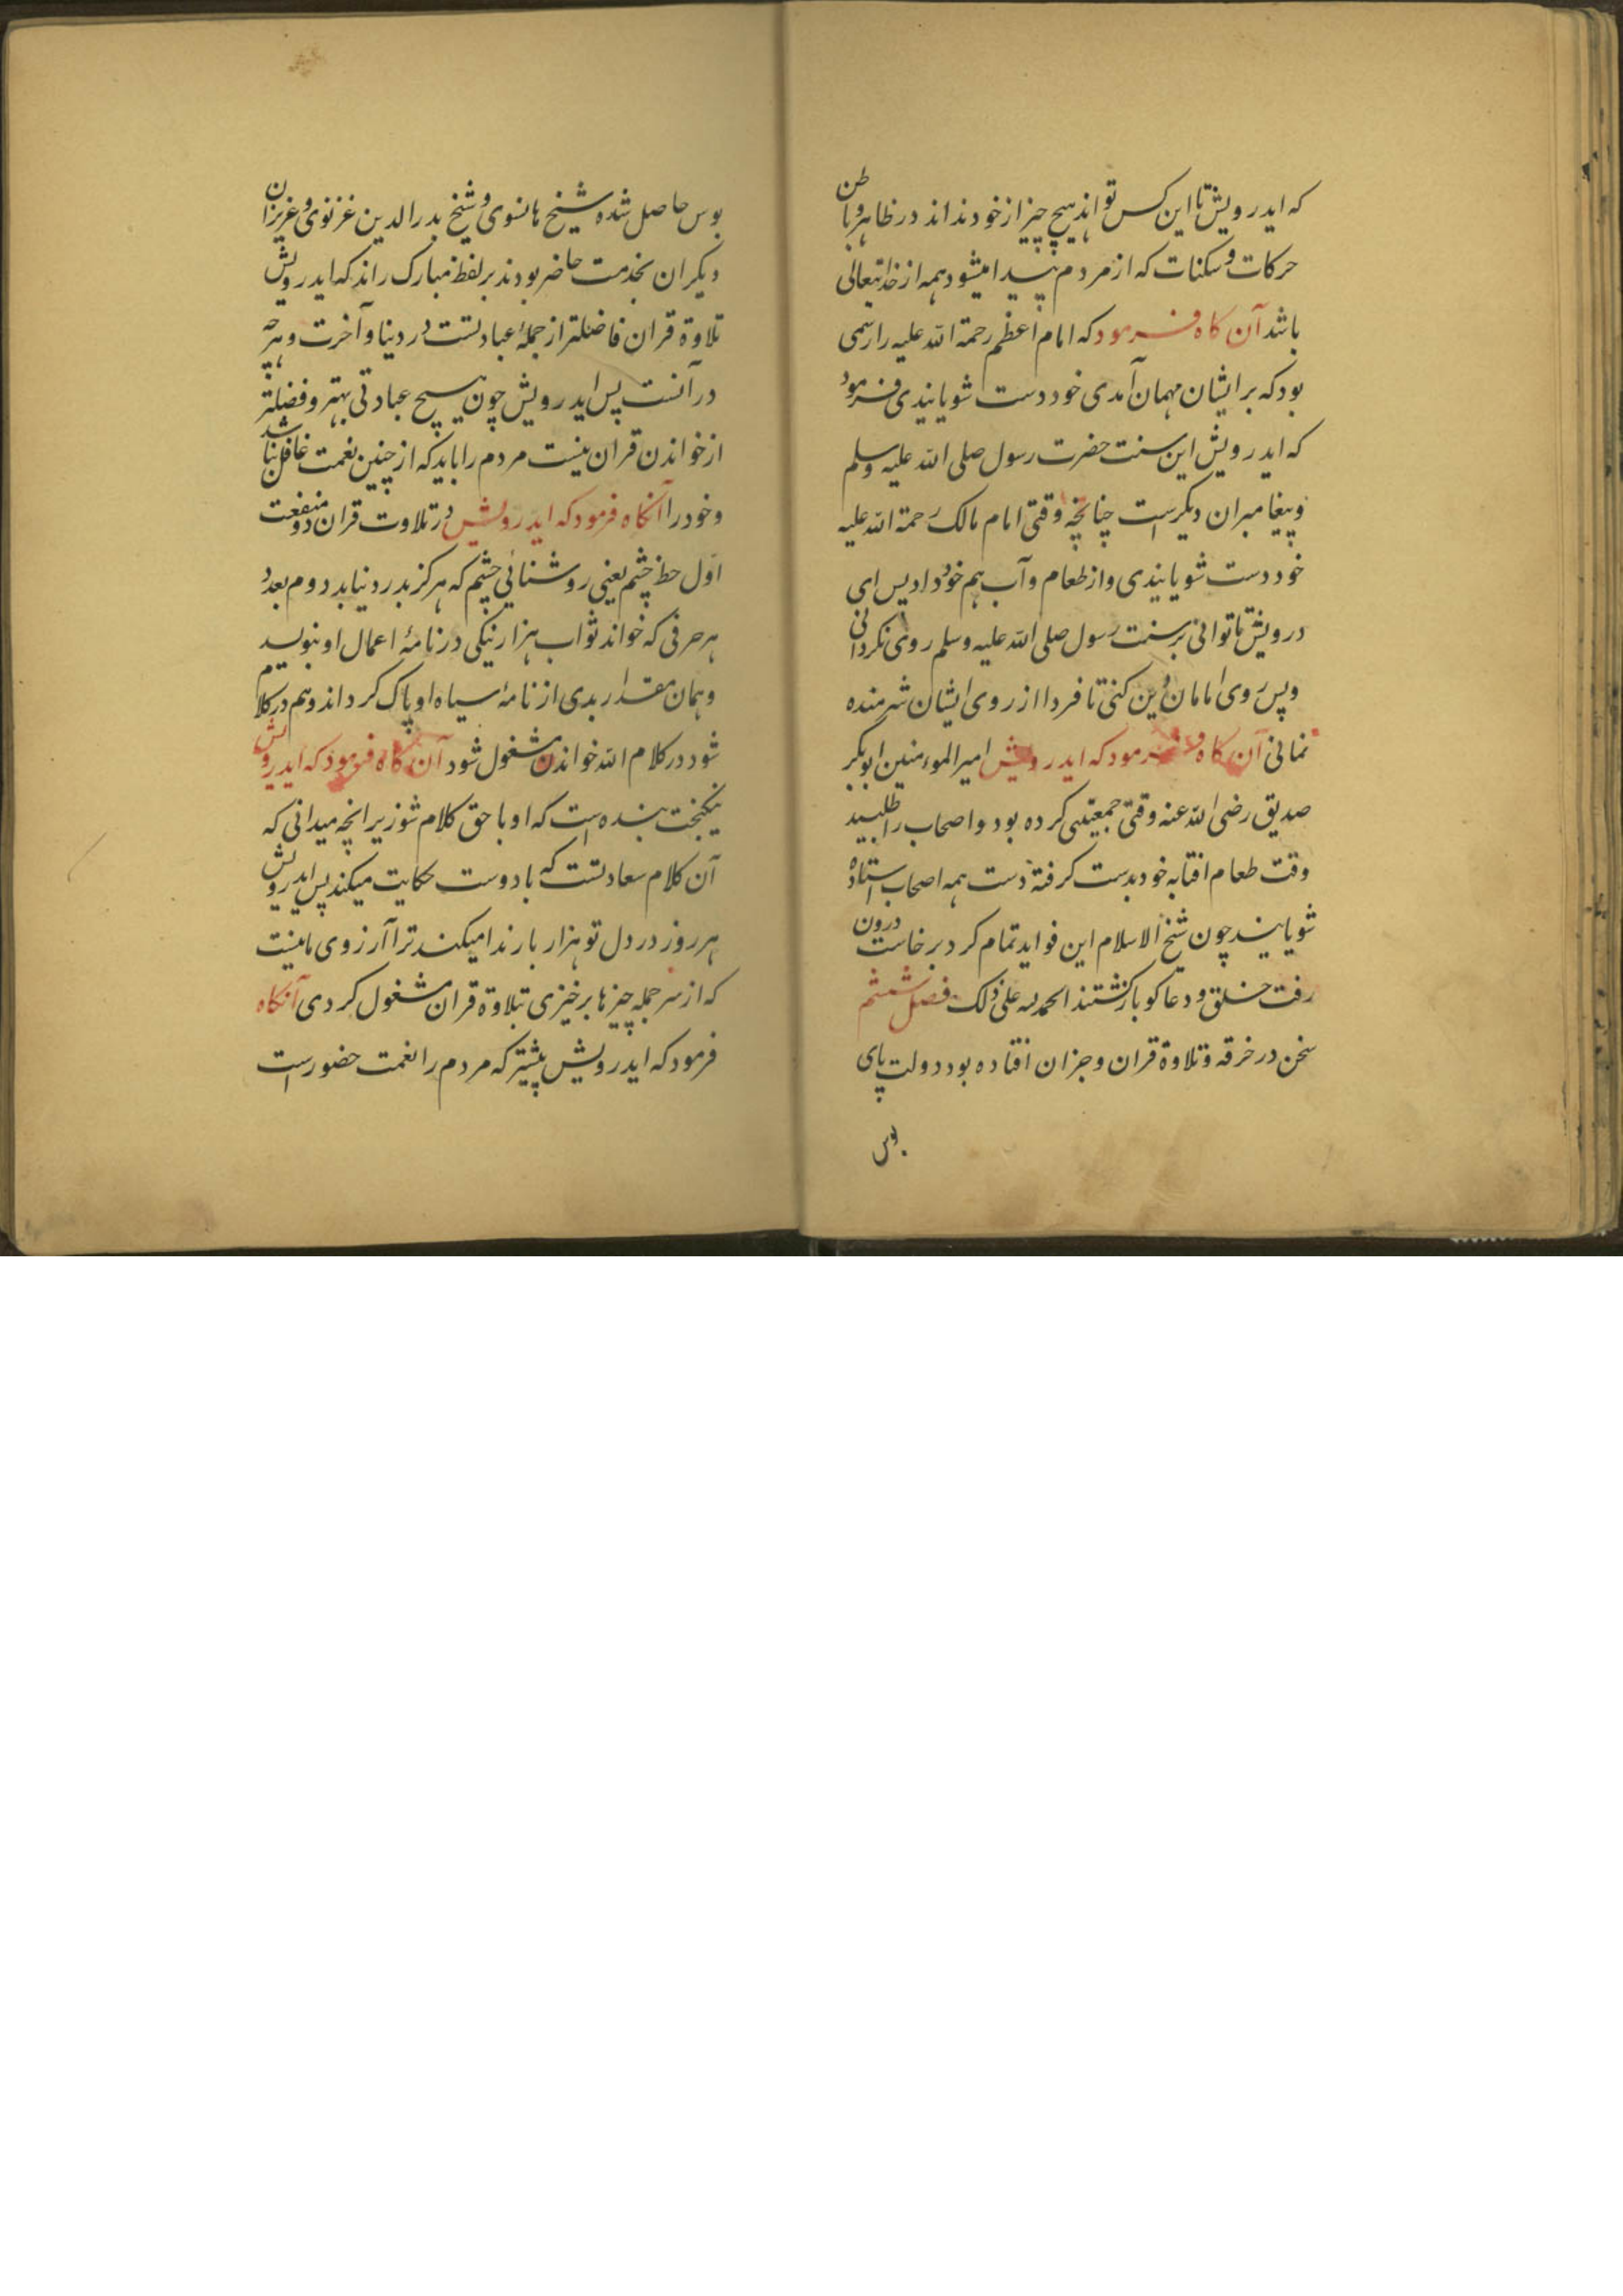 که ایدرویش تا این کس تواند هیچ چیز از خود نداند در ظاهر و باطن
حرکات و سکنات که از مردم پیدا میشود همه از خدایتعالی
باشد آن کاه فرمود که امام اعظم رحمة الله علیه را رسمی
بود که بر ایشان مهمان آمدی خود دست شویانیدی فرمود
که ایدرویش این سنت حضرت رسول صلی الله علیه وسلم
و پیغامبران دیکرست چنانچه وقتی امام مالک رحمة الله علیه
خود دست شویانیدی و از طعام و آب هم خود داد پس ای
درویش تا توانی بر سنت رسول صلی الله علیه وسلم روی نکردانی
و پس روی امامان دین کنی تا فردا از روی ایشان شرمنده
نمانی آن کاه فرمود که ایدرویش امیر المومنین ابوبکر
صدیق رضی الله عنه وقتی جمعیتی کرده بود و اصحاب را طلبید
وقت طعام افتابه خود بدست کرفته دست همه اصحاب استاده
شویانید چون شیخ الاسلام این فواید تمام کرد برخاست درون
رفت خلق و دعا کو بازکشتند الحمد لله علی ذلک فصل ششم
سخن در خرقه و تلاوة قران و جزان افتاده بود دولت پای
بوس
بوس حاصل شده شیخ هانسوی و شیخ بدرالدین غزنوی و عزیزان
دیکران بخدمت حاضر بودند بر لفظ مبارک راند که ایدرویش
تلاوة قران فاضلتر از جملهٔ عبادتست در دنیا و آخرت و هرچه
در آنست پس ایدرویش چون هیچ عبادتی بهتر و فضلتر
از خواندن قران نیست مردم را باید که از چنین نعمت غافل نباشد
و خود را آنکاه فرمود که ایدرویش در تلاوت قران دو منفعت
اول حظ چشم یعنی روشنائی چشم که هرکز بدرد نیاید دوم بعد
هر حرفی که خواند ثواب هزار نیکی در نامهٔ اعمال او بنویسد
و همان مقدار بدی از نامهٔ سیاه او پاک کرداند و هم در کلام
شود در کلام الله خواندن مشغول شود آن کاه فرمود که ایدرویش
نیکبخت بنده است که او با حق کلام شود زیرانچه میدانی که
آن کلام سعادتست که با دوست حکایت میکند پس ایدرویش
هر روز در دل تو هزار بار ندا میکند ترا آرزوی ما نیست
که از سر جمله چیزها برخیزی بتلاوة قران مشغول کردی آنکاه
فرمود که ایدرویش پیشتر که مردم را نعمت حضورست